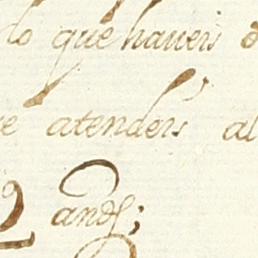 lo que haveis
atenders al
2 and;